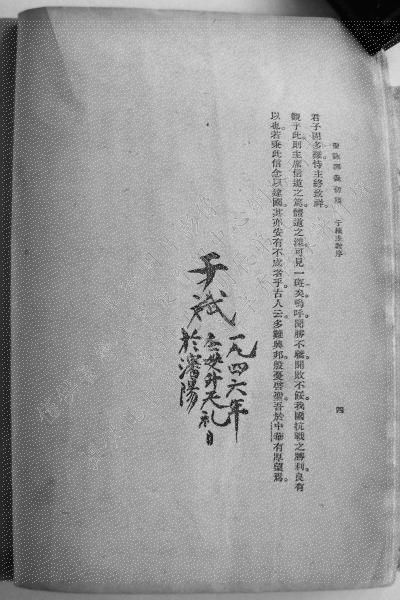 聖詠譯義初稿 于樞主教序
四
君子固多難恃主終致祥。
觀乎此則主席信道之篤體道之深可見一斑矣嗚呼聞勝不驕聞敗不餒我國抗戰之勝利良有
以也若乘此信念以建國其亦安有不成者乎古人云多難興邦殷憂啓聖吾於中華有厚望焉。
于斌
一九四六年
聖母升天禮日
於瀋陽